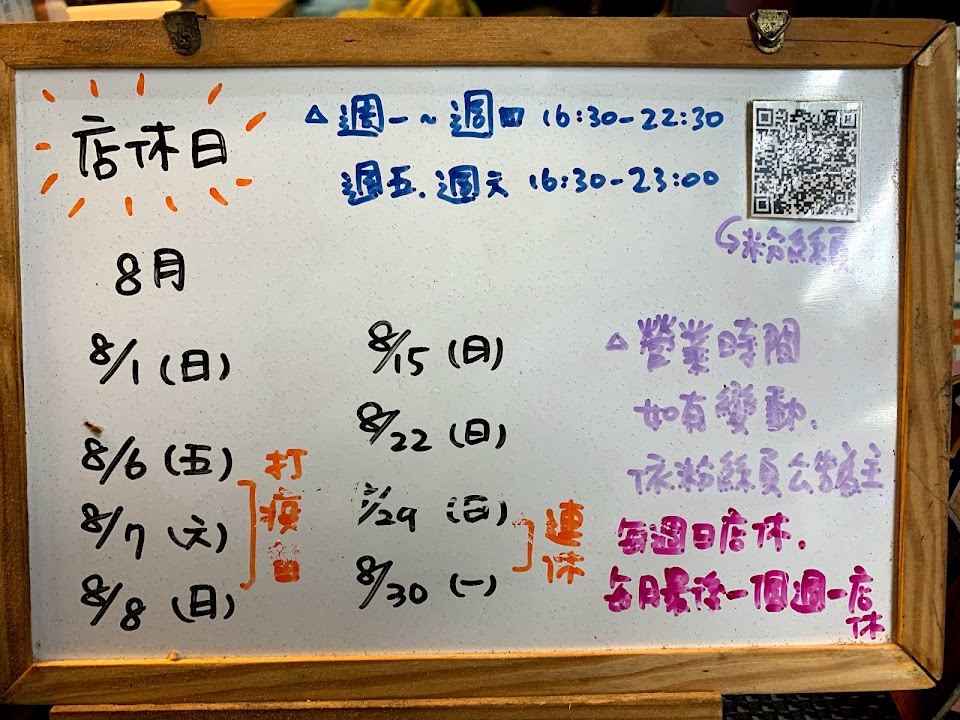 店休日
△週一~週四 16:30-22:30
週五.週六 16:30-23:00
粉絲頁
8月
8/1(日)
8/6(五)
8/7(六)
8/8(日)
打疫苗
8/15(日)
8/22(日)
8/29(日)
8/30(一)
連休
△營業時間
如有變動.
依粉絲頁公告為主
每週日店休.
每月最後一個週一店
休